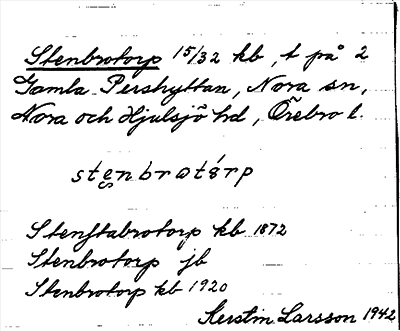 Stenbrotorp 15/32 kb, t på 2
Gamla Pershyttan, Nora sn,
Nora och Hjulsjö hd, Örebro l.
stenbrotórp
Stenstabrotorp kb 1872
Stenbrotorp jb
Stenbrotorp kb 1920
Kerstin Larsson 1942